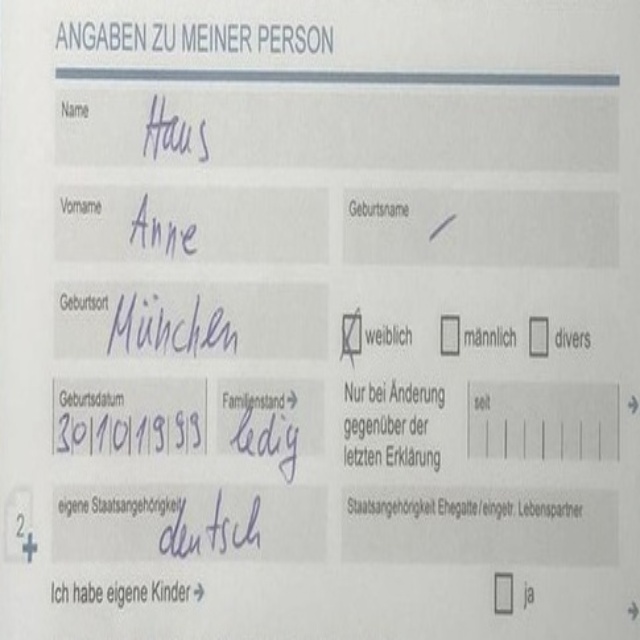 ANGABEN ZU MEINER PERSON
Name Haus
Vorname Anne
Geburtsname /
Geburtsort München
weiblich männlich divers
Geburtsdatum 30|10|1999
Familienstand → ledig
Nur bei Änderung gegenüber der letzten Erklärung
seit
eigene Staatsangehörigkeit deutsch
Staatsangehörigkeit Ehegatte/eingetr. Lebenspartner
2
Ich habe eigene Kinder → ja